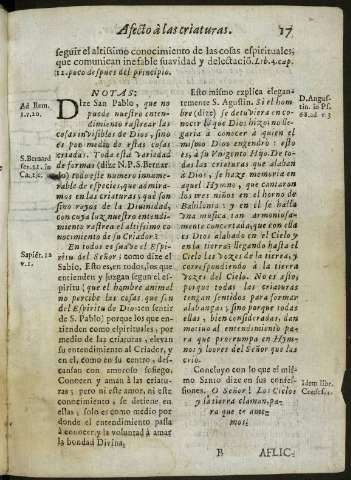 Afecto à las criaturas. 17
seguir el altissimo conocimiento de las cosas espirituales,
que comunican inefable suavidad y delectaciō. Lib. 4. cap.
12. poco despues del principio.
NOTAS:
Ad Rom.
1. v. 20.
DIze San Pablo, que no
puede nuestro enten-
dimiento rastrear las
cosas invisibles de Dios, sino
es por medio de estas cosas
criadas. Toda esta variedad
S. Bernard
ser. 31. in
Cātic.
de formas (dize N. P. S. Bernar
do) todo este numero innume-
rable de especies, que admira-
mos en las criaturas, què son
sino rayos de la Divinidad,
con cuya luz nuestro entendi-
miento rastrea el altissimo co
nocimiento de su Criador?
En todos es suave el Espi-
Sapiēt. 12
v. 1.
ritu del Señor; como dize el
Sabio. Esto es, en todos, los que
entienden y juzgan segun el es-
piritu; que el hombre animal
no percibe las cosas que son
del Espiritu de Dios: (en sentir
de S. Pablo) porque los que en-
tienden como espirituales, por
medio de las criaturas, elevan
su entendimiento al Criador, y
en el, como en su centro, des-
cansan con amoroso sosiego.
Conocen y aman à las criatu-
ras; pero ni este amor, ni este
conocimiento, se detiene en
ellas; solo es como medio por
donde el entendimiento passa
à conocer y la voluntad à amar
la bondad Divina.
Esto mismo explica elegan-
temente S. Agustin. Si el hom
D. Angus-
tin. in Ps.
68. ad v. 3
bre (dize) se detuviera en co-
nocerse que Dios hizolo no lle-
garia à conocer à quien el
mismo Dios engendrò: esto
es, à su Vnigenito Hijo. De to-
das las criaturas que alaban
à Dios, se haze memoria en
aquel Hymno, que cantaron
los tres niños en el horno de
Babilonia: y en el se halla
vna musica tan armoniosa-
mente concertada, que con ella
es Dios alabado en el Cielo y
en la tierra: llegando hasta el
Cielo las vozes de la tierra, y
correspondiendo à la tierra
vozes del Cielo. No es esto,
porque todas las criaturas
tengan sentidos para formar
alabanças; sino porque todas
ellas, bien consideradas, dan
motivo al entendimiento pa-
ra que prorrumpa en Hym-
nos y loores del Señor que las
criò.
Concluyo con lo que el mis-
mo Santo dize en sus confes-
Idem libr.
Confessi.
siones. O Señor! Los Cielos
y la tierra claman, pa-
ra que te ame-
mos:
B AFLIC-